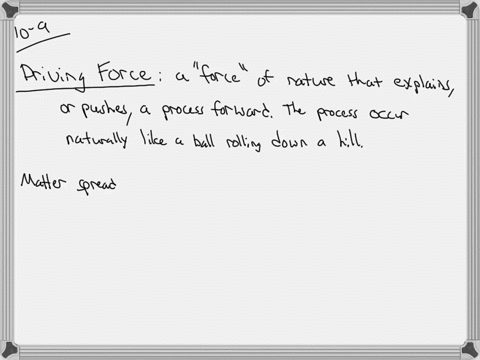 10-9
Driving Force: a "force" of nature that explains,
or pushes, a process forward. The process occur
naturally like a ball rolling down a hill.
Matter spread